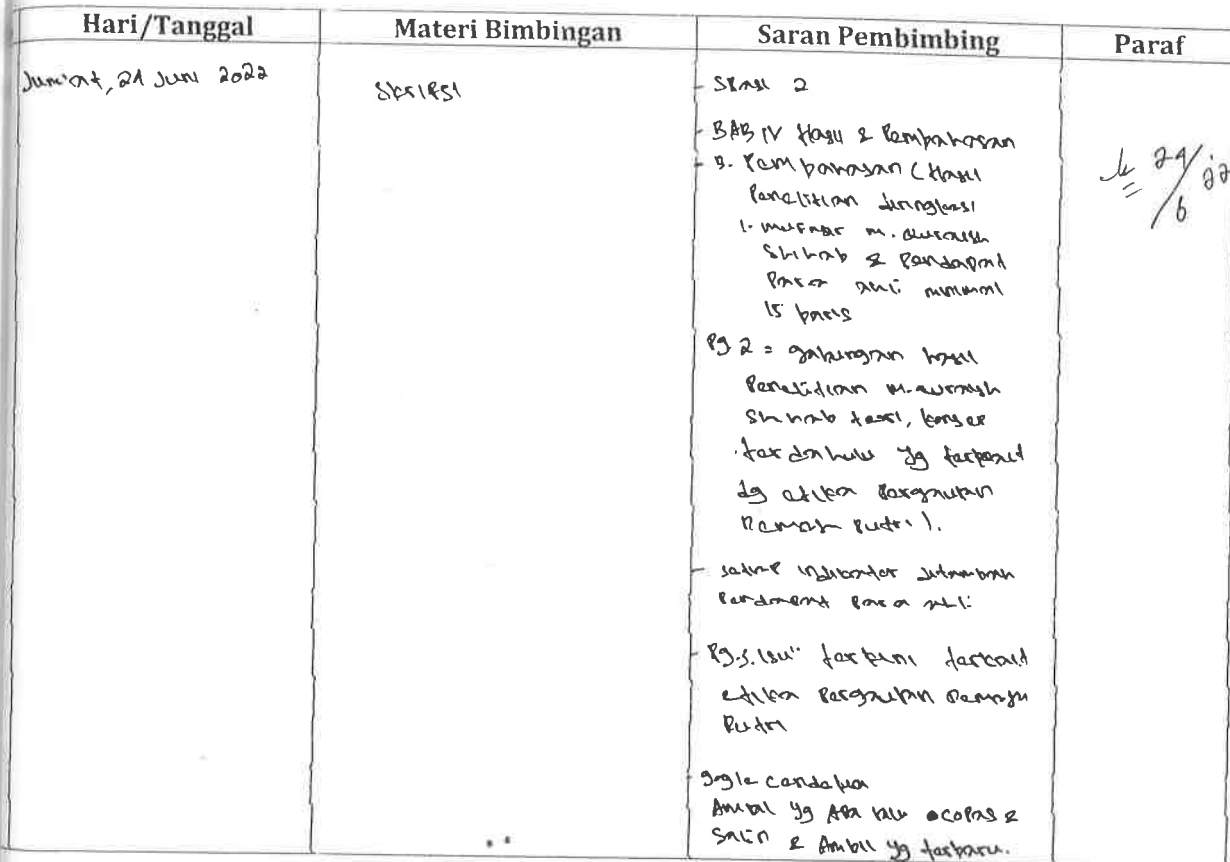 Hari/Tanggal Materi Bimbingan Saran Pembimbing Paraf
Jum'at, 24 Juni 2022
Skripsi
- Spasi 2
- BAB IV Hasil & Pembahasan
- B. Pembahasan (Hasil
Penelitian
1. M. Quraish
Shihab & Pendapat
Para ahli minimal
15 baris
Pg 2 = gabungan hasil
Penelitian M. Quraish
Shihab
terdahulu yg terkait
dg etika Pergaulan
Remaja Putri).
- setiap indikator ditambah
Pendapat Para ahli
- Pg. 3. isu" terkini terkait
etika Pergaulan Remaja
Putri
- gogle cendekia
Ambil yg APA lalu copas &
Salin & Ambil yg terbaru.
24/6 22